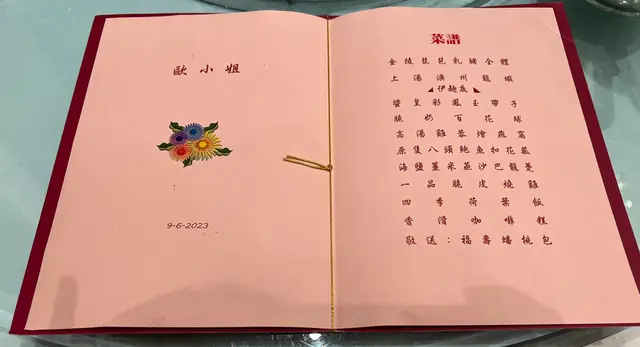 歐小姐
9-6-2023
菜譜
金陵琵琶乳豬全體
上湯澳州龍蝦
伊麵底
醬皇彩鳳玉帶子
脆奶百花球
高湯雞蓉燴燕窩
原隻八頭鮑魚扣花菇
海鹽薑米蒸沙巴龍躉
一品脆皮燒雞
四季荷葉飯
香滑咖啡糕
敬送：福壽蟠桃包